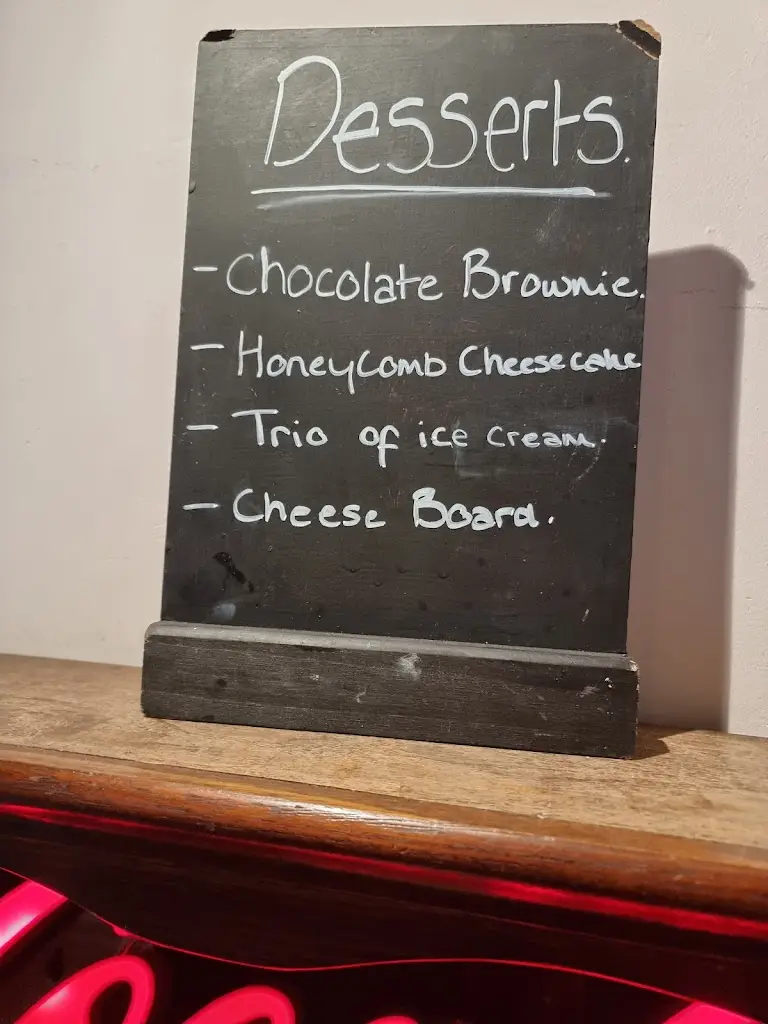 Desserts.
- Chocolate Brownie.
- Honeycomb Cheesecake
- Trio of ice cream.
- Cheese Board.